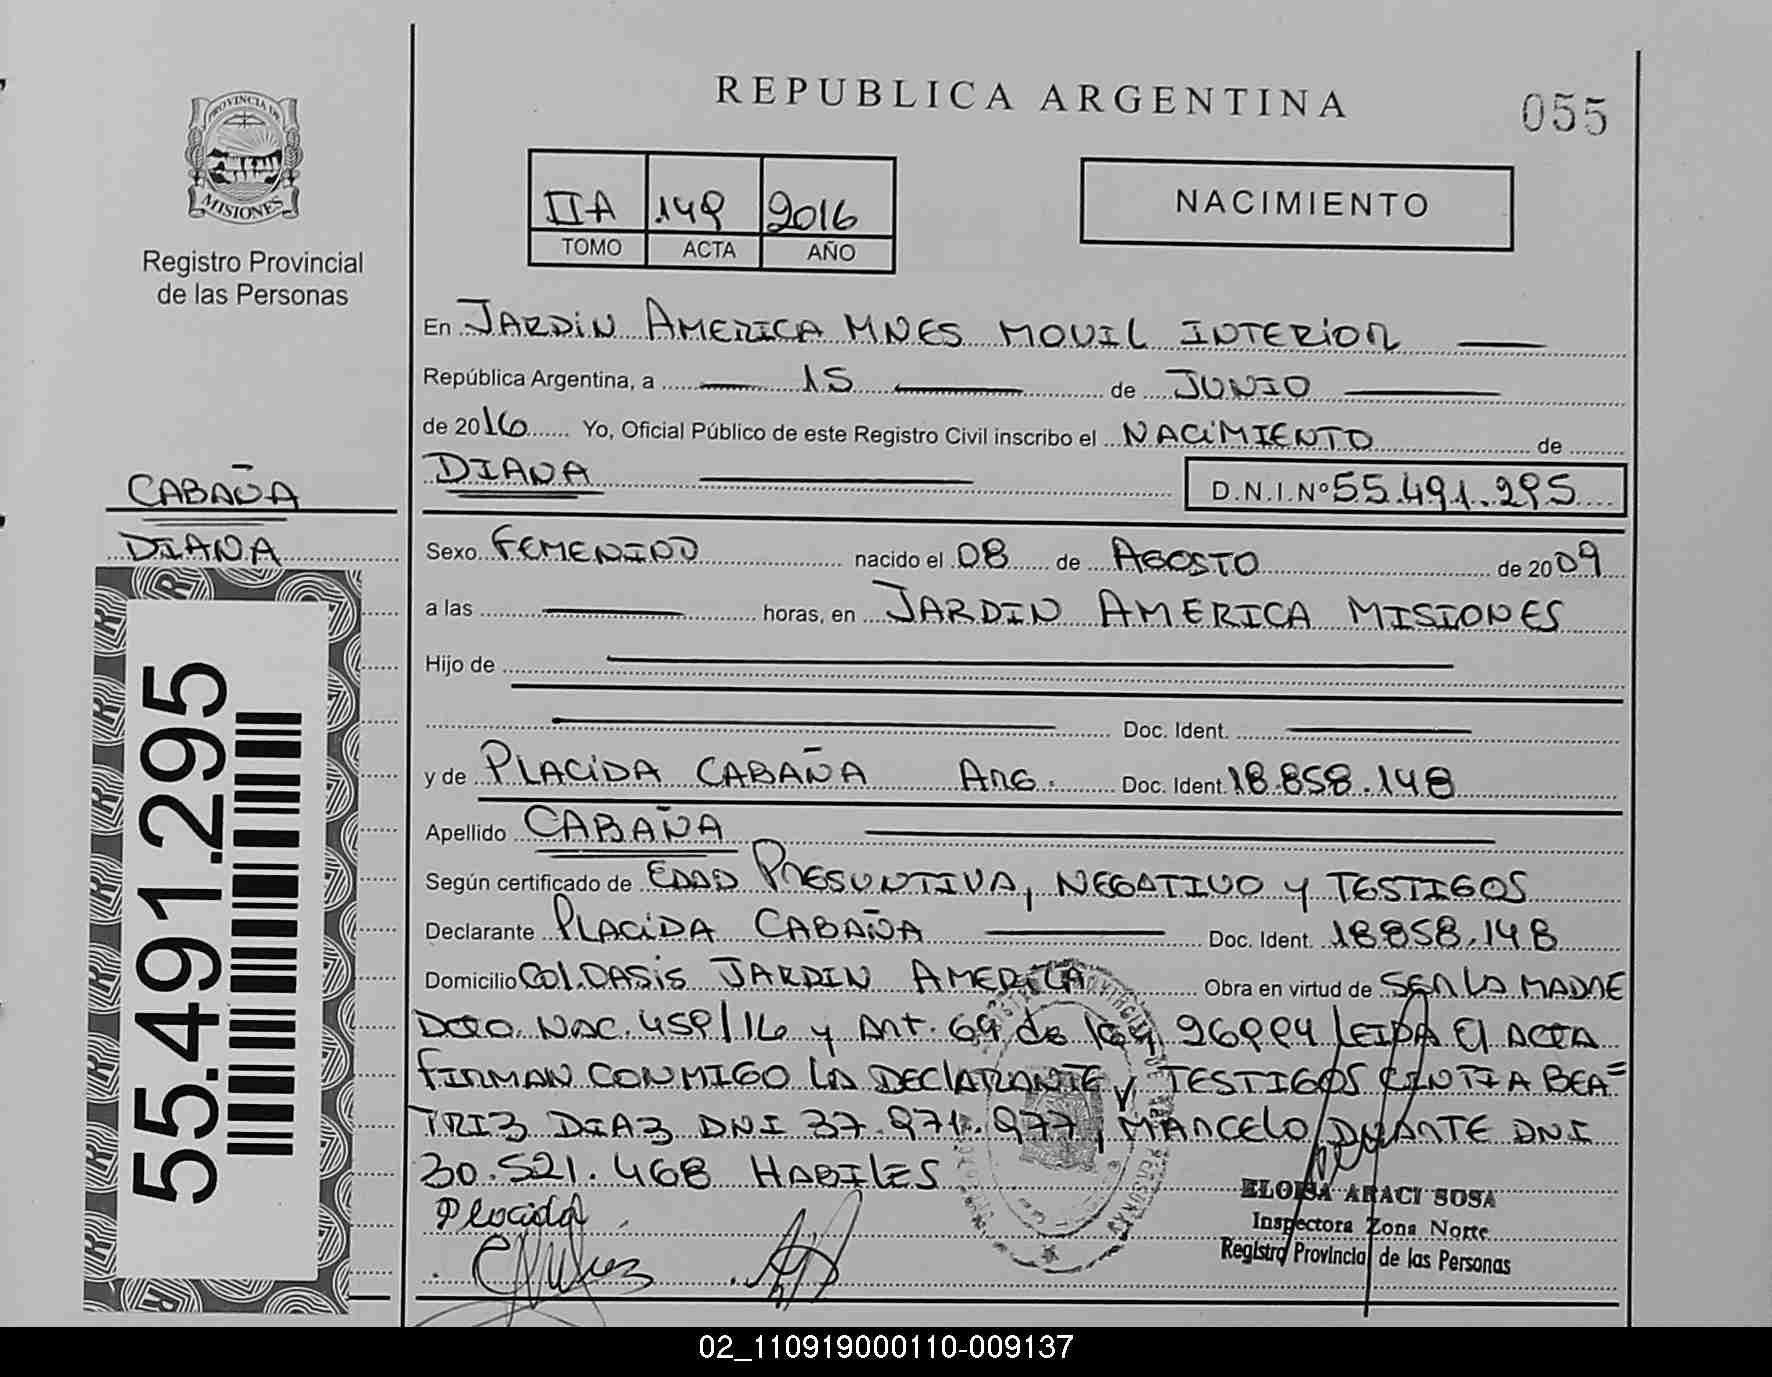 REPUBLICA ARGENTINA
055
PROVINCIA DE
MISIONES
Registro Provincial
de las Personas
IIA 149 2016
TOMO ACTA AÑO
NACIMIENTO
En JARDIN AMERICA MNES MOVIL INTERIOR
República Argentina, a 15 de JUNIO
de 2016 Yo, Oficial Público de este Registro Civil inscribo el NACIMIENTO de
DIANA D.N.I.Nº 55.491.295
CABAÑA
DIANA
55.491.295
Sexo FEMENINO nacido el 08 de AGOSTO de 2009
a las horas, en JARDIN AMERICA MISIONES
Hijo de
Doc. Ident.
y de PLACIDA CABAÑA ARG. Doc. Ident. 18.858.148
Apellido CABAÑA
Según certificado de EDAD PRESUNTIVA, NEGATIVO y TESTIGOS
Declarante PLACIDA CABAÑA Doc. Ident. 18858.148
Domicilio COl.OASIS JARDIN AMERICA Obra en virtud de SER LA MADRE
DCTO. NAC. 459/16 y Art. 69 de ley 26994 LEIDA El ACTA
FIRMAN CONMIGO LA DEClARANTE y TESTIGOS CINTIA BEA=
TRIZ DIAZ DNI 37.971.977, MARCELO DUARTE DNI
30.521.468 HABILES
Placida
ELOISA ARACI SOSA
Inspectora Zona Norte
Registro Provincial de las Personas
02_110919000110-009137